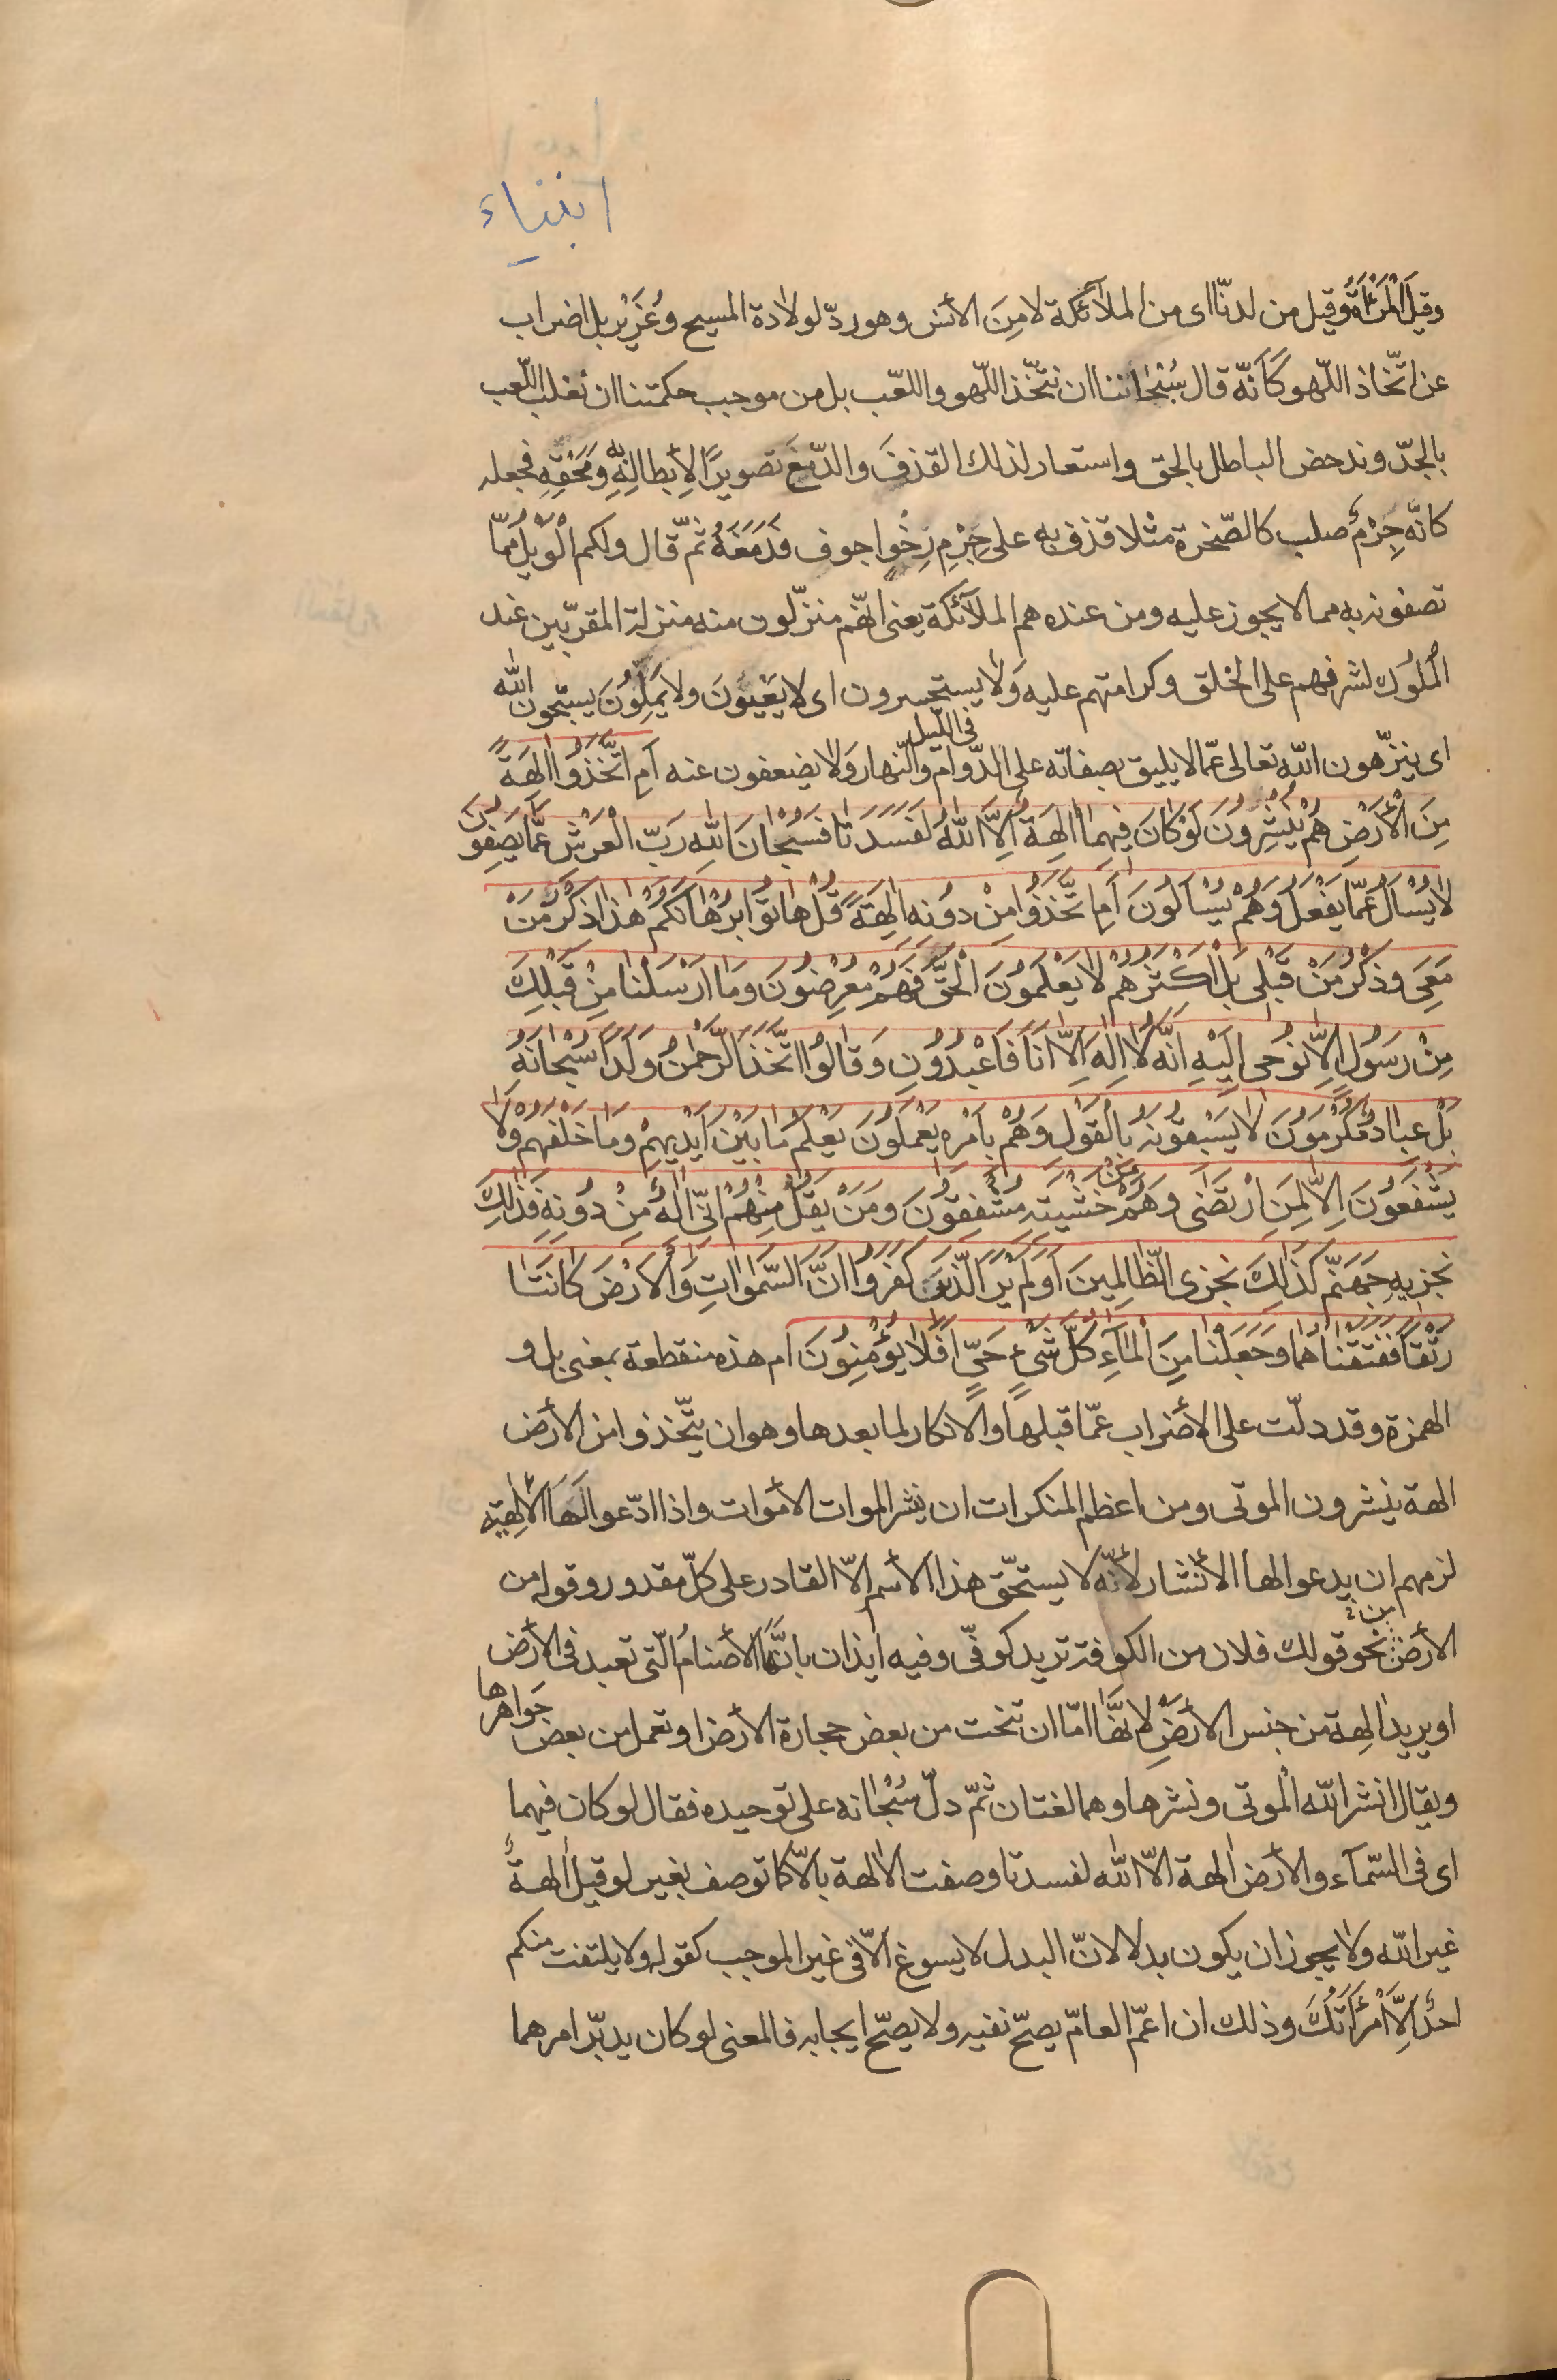 انبياء
وقيل الْمَرْاَةُ وقيل من لدنّا اى من الملآئكة لا مِنَ الأنس وهو ردّ لولادة المسيح وعُزَيْرٍ بل اضراب
عن اتّخاذ اللّهو كَاَنّه قال سُبْحاننا ان نتّخذ اللّهو واللعّب بل من موجب حكمتنا ان نغلب اللّعب
بالجدّ وندحض الباطل بالحق واستعار لذلك القذفَ والدّمْغَ تصويرًا لِأبطالِهِ به ومَحْقِهِ فجعله
كانّه جِرْمٌ صلب كالصّخرة مثلا قذف به على جِرْمٍ رِخْوٍ اجوف فَدَمَغَهُ ثمّ قال ولكم الْوَيْلُ مِمّا
تصفونه به مما لا يجوز عليه ومن عنده هم الملآئكة يعنى انّهم منزّلون منه منزلة المقرّبين عند
الْمُلُوك لشرفهم على الخلق وكرامتهم عليه وَلا يستحسرون اى لا يَعْيَوْنَ ولا يَمِلّوُنَ يسبّحون اللّٰه
اى ينزّهون اللّه تعالى عمّا لا يليق بصفاته على الدّوام فى اللّيل والنّهار وَلا يضعفون عنه اَمِ اتَّخَذُوا الِهَةً
مِنَ الْأَرْضِ هُمْ يُنْشِرُونَ لَوْ كانَ فِيهِما الِهَةٌ اِلاَّ اللّٰهُ لَفَسَدَتا فَسُبْحانَ اللّٰهِ رَبِّ الْعَرْشِ عَمّا يَصِفُونَ
لا يُسْأَلُ عَمّا يَفْعَلُ وَهُمْ يُسْأَلُونَ اَمِ اتَّخَذُوا مِنْ دُونِهِ الِهَةً قُلْ هاتُوا بُرْهانَكُمْ هذا ذِكْرُ مَنْ
مَعِىَ وَذِكْرُ مَنْ قَبْلى بَلْ اَكْثَرُهُمْ لا يَعْلَمُونَ الْحَقَّ فَهُمْ مُعْرِضُونَ وَما اَرْسَلْنا مِنْ قَبْلِكَ
مِنْ رَسُولٍ اِلاّ نُوحى اِلَيْهِ اَنَّهُ لا اِلهَ اِلاّ اَنَا فَاعْبُدُونِ وَقالُوا اتَّخَذَ الرَّحْمنُ وَلَدًا سُبْحانَهُ
بَلْ عِبادٌ مُكْرَمُونَ لا يَسْبِقُونَهُ بِالْقَوْلِ وَهُمْ بِاَمْرِهِ يَعْمَلُونَ يَعْلَمُ ما بَيْنَ اَيْدِيهِمْ وَما خَلْفَهُمْ وَلا
يَشْفَعُونَ اِلاّ لِمَنِ ارْتَضى وَهُمْ مِنْ خَشْيَتِهِ مُشْفِقُونَ وَمَنْ يَقُلْ مِنْهُمْ اِنّى اِلهٌ مِنْ دُونِهِ فَذلِكَ
نَجْزِيهِ جَهَنَّمَ كَذلِكَ نَجْزِى الظّالِمِينَ اَوَلَمْ يَرَ الَّذِينَ كَفَرُوا اَنَّ السَّمواتِ وَالْأَرْضَ كانَتا
رَتْقًا فَفَتَقْناهُما وَجَعَلْنا مِنَ الْمآءِ كُلَّ شَىْءٍ حَىٍّ اَفَلا يُؤْمِنُونَ ام هذه منقطعة بمعنى بل و
الهمزة وقد دلّت على الأضراب عمّا قبلها والأنكار لما بعدها وهو ان يتّخذوا من الأرض
الهة ينشرون الموتى ومن اعظم المنكرات ان ينشر الموات الأموات واذا ادّعوا لَهَا الألهيّة
لزمهم ان يدعوا لها الأنشار لأنّه لا يستحّق هذا الأسم الاّ القادر على كلّ مقدور وقوله من
الأرض من نحو قولك فلان من الكوفة تريد كوفّى وفيه ايذان بانّها الأصنامُ الّتى تعبد فى الأرض
او يريد الِهة من جنس الأرضِ لأنّها امّا ان تنحت من بعض حجارة الأرض او تعمل من بعض جَواهرها
ويقال انشر اللّه الموتى ونشرها وهما لغتان ثُمّ دلّ سُبْحانه على توحيده فقال لو كان فيهما
اى فى السّمآء والأرض الهة الاّ اللّٰه لفسدتا وصفت الألهة بالاّ كما توصف بغير لو قيل الهةٌ
غير اللّه ولا يجوز ان يكون بدلا لانّ البدل لا يسوغ الاّ فى غير الموجب كقوله ولا يلتفت منكم
احدٌ اِلاَّ امْرَأَتُكَ وذلك ان اعمّ العامّ يصحّ نفيه ولا يصحّ ايجابه فالمعنى لو كان يدبّر امرهما